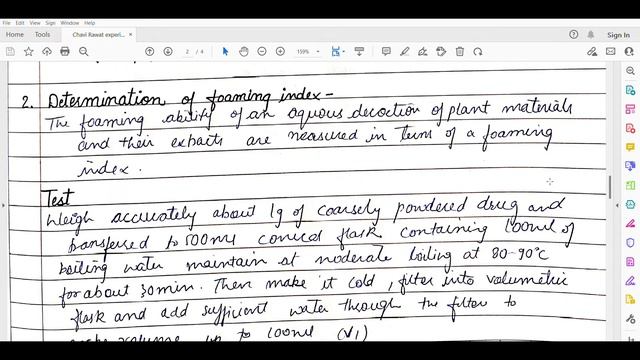 File Edit View Sign Window Help
Home Tools Chavi Rawat experi... × Sign In
2 / 4 159%
2. Determination of foaming index -
The foaming ability of an aquous decoction of plant materials
and their extracts are measured in terms of a foaming
index.
Test
Weigh accurately about 1g of coarsely powdered drug and
transfered to 500ml conical flask containing 100ml of
boiling water maintain at moderate boiling at 80-90°C
for about 30min. Then make it cold, filter into volumetric
flask and add sufficient water through the filter to
volume up to 100ml (V1)